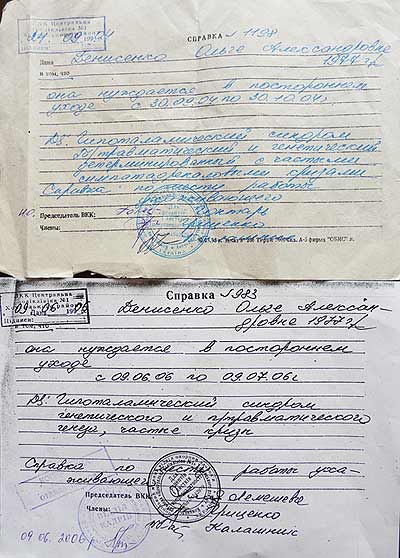 ВКК Центральна
поліклініка №1
24 09 04
СПРАВКА № 1198
Дана Денисенко Ольге Александровне
1977 гр
в том, что
она нуждается в постороннем
уходе с 30.09.04 по 30.10.04г
Дз: Гипоталамический синдром
п/травматический и генетический
детерминированный с частыми
симпатоадреналовыми кризами
Справка по месту работы
ухаживающего
Председатель ВКК:
Члены:
ВКК Центральна
поліклініка №1
09 06 06
Підписи:
Справка № 1983
Денисенко Ольге Алексан-
дровне 1977 гр
она нуждается в постороннем
уходе
с 09.06.06 по 09.07.06г
Дз: Гипоталамический синдром
генетического и п/травматического
генеза, частые кризы
Справка по месту работы уха-
живающего
Председатель ВКК: Лемешева
Члены: Гриценко
Калашник
09 06 2006